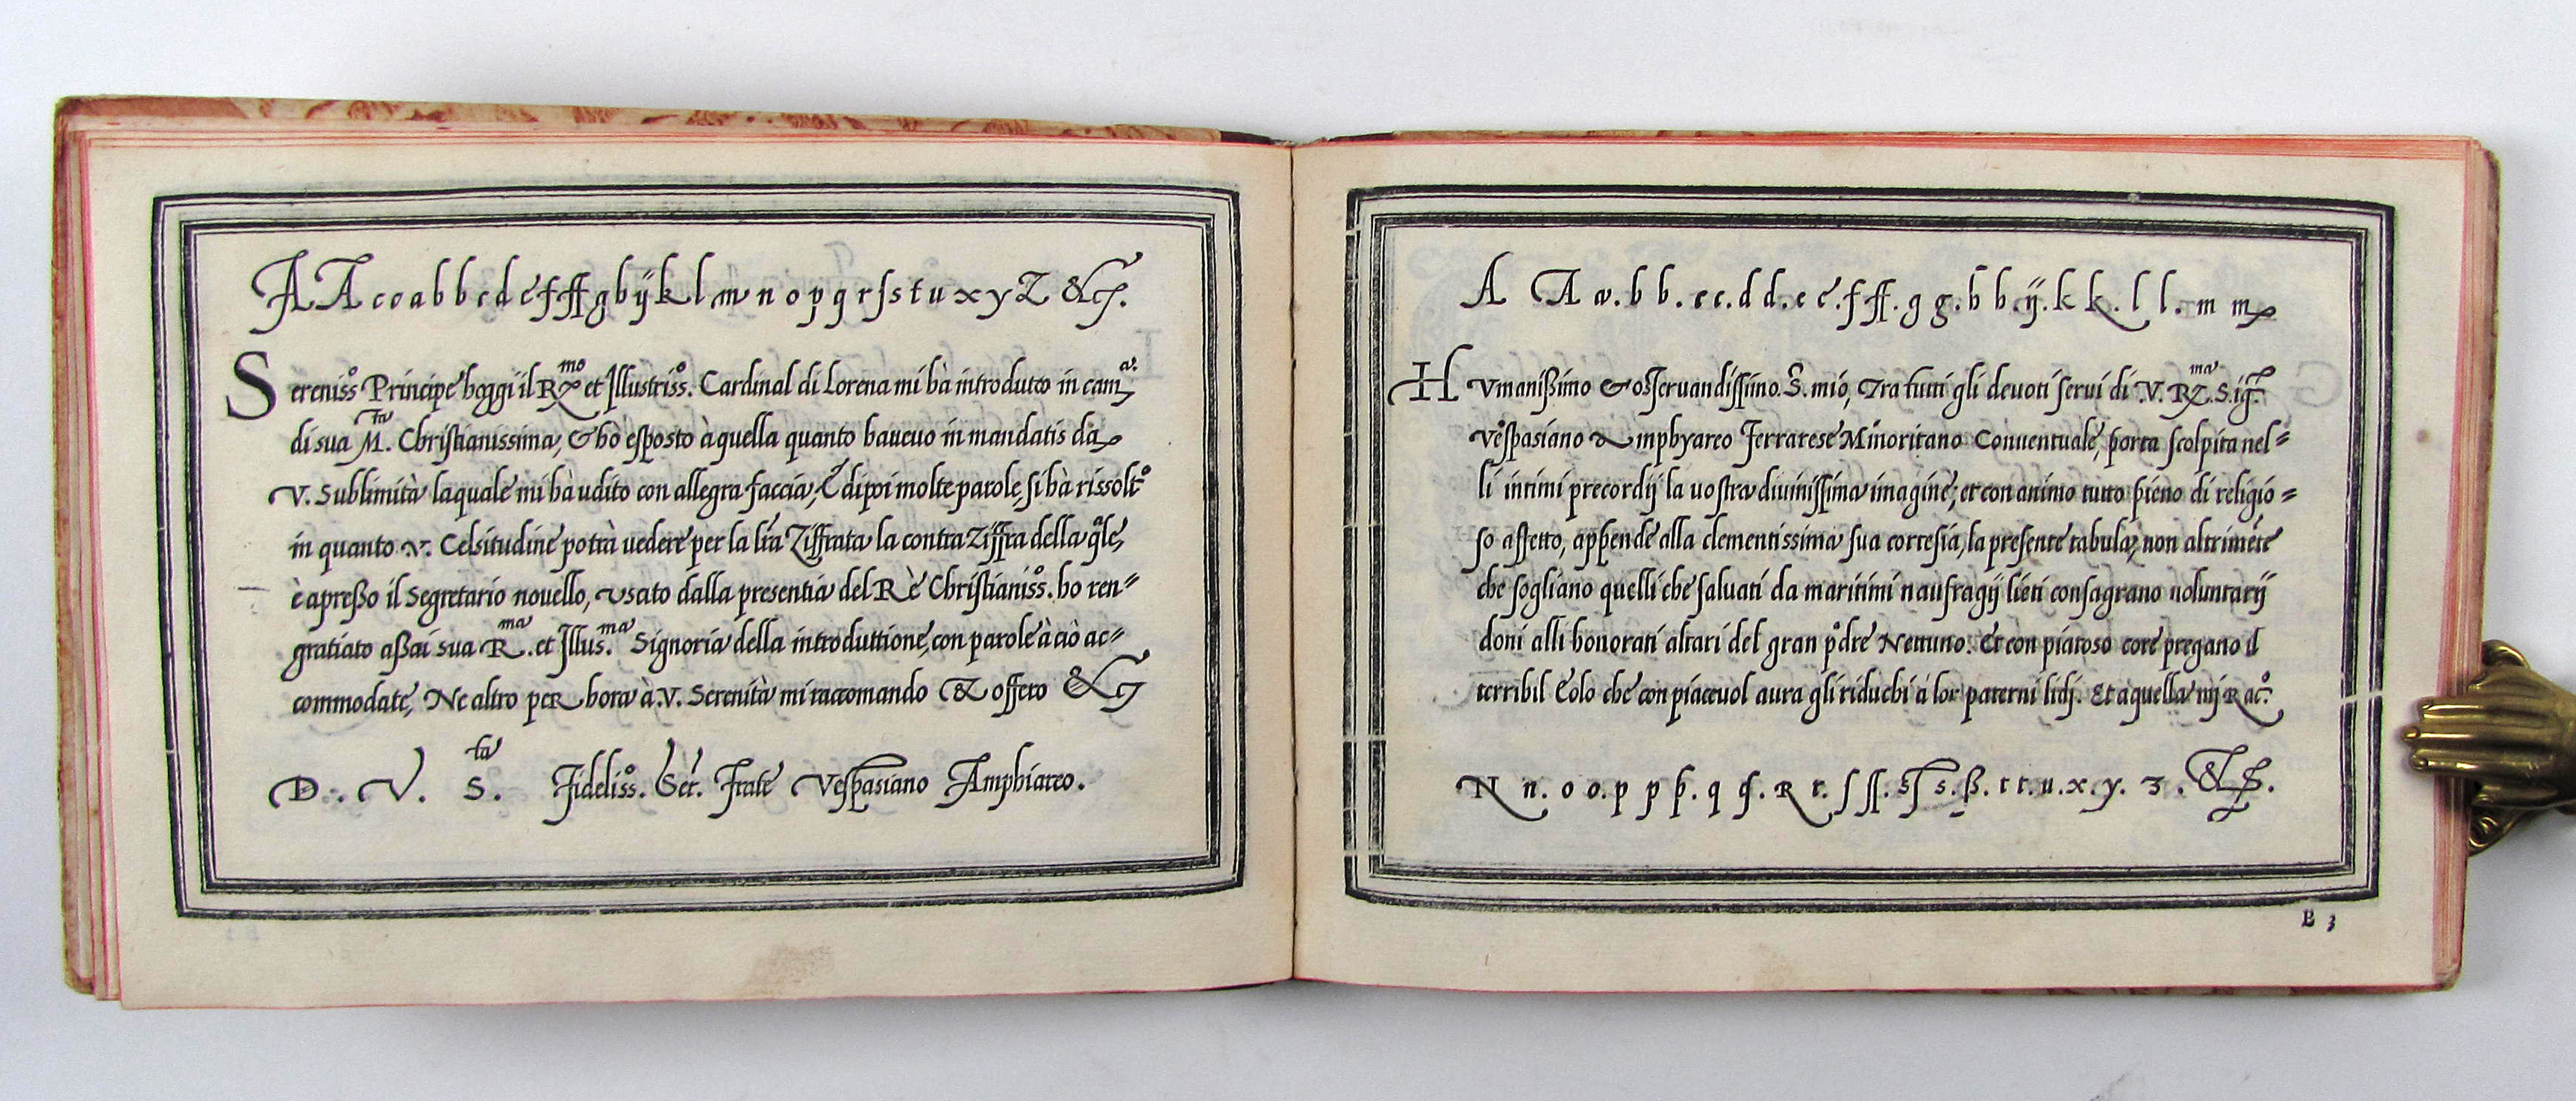 A A a c a b b c d e f ff g h ij k l m n o p q r ſ s t u x y Z &c.
Sereniss.º Principe hoggi il R.mo et Illustriss.º Cardinal di Lorena mi hà introdutto in cam.a
di sua M.ta Chriſtianissima, & hò eſpoſto à quella quanto haueuo in mandatis da
V. Sublimità laquale mi hà udito con allegra faccia, & dipoi molte parole, ſi hà rissolt.º
in quanto V. Celsitudine potrà uedere per la l'ra Ziffrata la contra Ziffra della q̊le,
è apreßo il Segretario nouello, vscito dalla presentia del Rè Chriſtianiss.º ho ren=
gratiato aßai sua R.ma et Illus.ma Signoria della introduttione, con parole à ciò ac=
commodate, Ne altro per hora à .V. Serenità mi raccomando & offero &c
D. V. S.ta Fideliss.º Ser. Frate Veſpasiano Amphiareo.
A A a. b b. c c. d d. e e. f ff. g g. h h. ij. k k. l l. m m
Humanißimo & oſſeruandiſſimo. S. mio, Tra tutti gli deuoti ſerui di .V. R.ma S.ig.
Veſpasiano Amphyareo Ferrarese Minoritano Conuentuale, porta ſcolpita nel=
li intimi precordij la uoſtra diuiniſſima imagine; et con animo tutto pieno di religio=
ſo affetto, appende alla clementissima ſua cortesia, la preſente tabula, non altrimēte
che ſogliano quelli che ſaluati da maritimi naufragij lieti conſagrano uoluntarij
doni alli honorati altari del gran p̊dre Nettuno. Et con piatoso core pregano il
terribil Eolo che con piaceuol aura gli riduchi à lor paterni lidi. Et a quella mi Rac.º
N n. o o. p p p. q q. R r. ſ ſſ. sſ s. ß. t t. u. x. y. 3. &c.
B 3